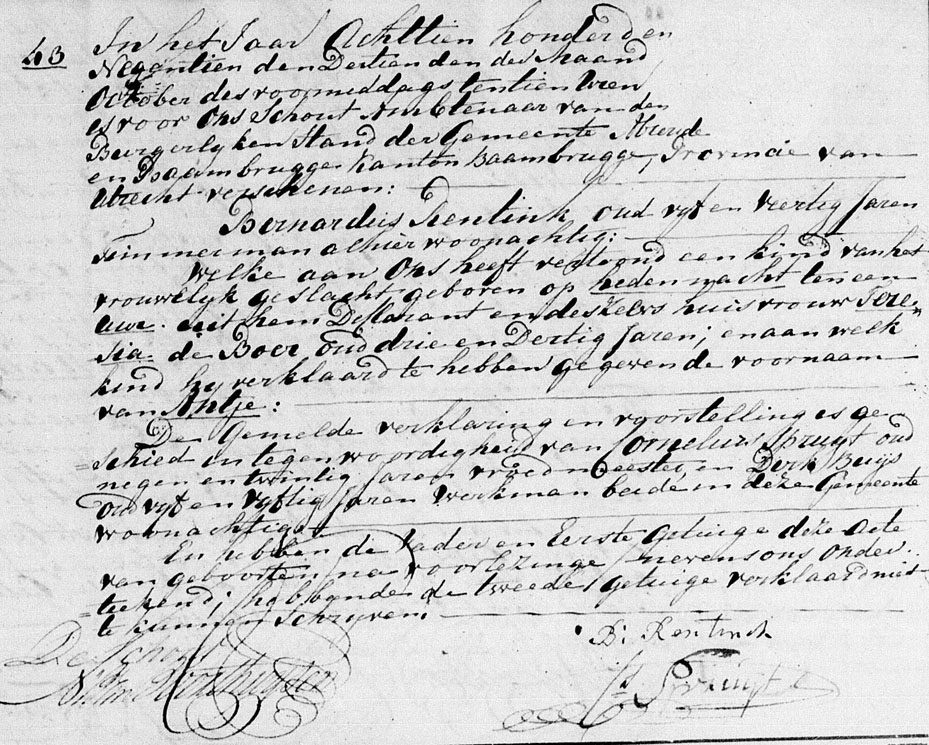 43
In het Jaar Achttien honderd en
Negentien den Dertienden der Maand
October des voormiddags ten tien Uren
is voor Ons Schout Ambtenaar van den
Burgerlyken Stand der Gemeente Abcoude
en Baambrugge Kanton Baambrugge, Provincie van
Utrecht verschenen:
Bernardus Rentink, oud vyf en veertig Jaren
Timmerman alhier woonachtig:
Welke aan Ons heeft vertoond een kind van het
vrouwelyk geslacht geboren op heden nacht ten een
uur uit hem Declarant en deszelvs huisvrouw There=
sia de Boer oud drie en Dertig Jaren; en aan welk
kind hy verklaard te hebben gegeven de voornaam
van Antje:
De Gemelde verklaring en voorstelling is ge
=schied in tegenwoordigheid van Cornelius Spruyt oud
negen en twintig Jaren vroedmeester, en Derk Buijs
oud vyf en vyftig Jaren werkman beide in deze Gemeente
woonachtig
En hebben de Vader en Eerste Getuige deze Acte
van geboorten, na voorlezinge, nevens ons onder
=teekend; hebbende de tweede getuige verklaard niet
te kunnen schryven.
B: Rentinck
De Schout
C Spruijt